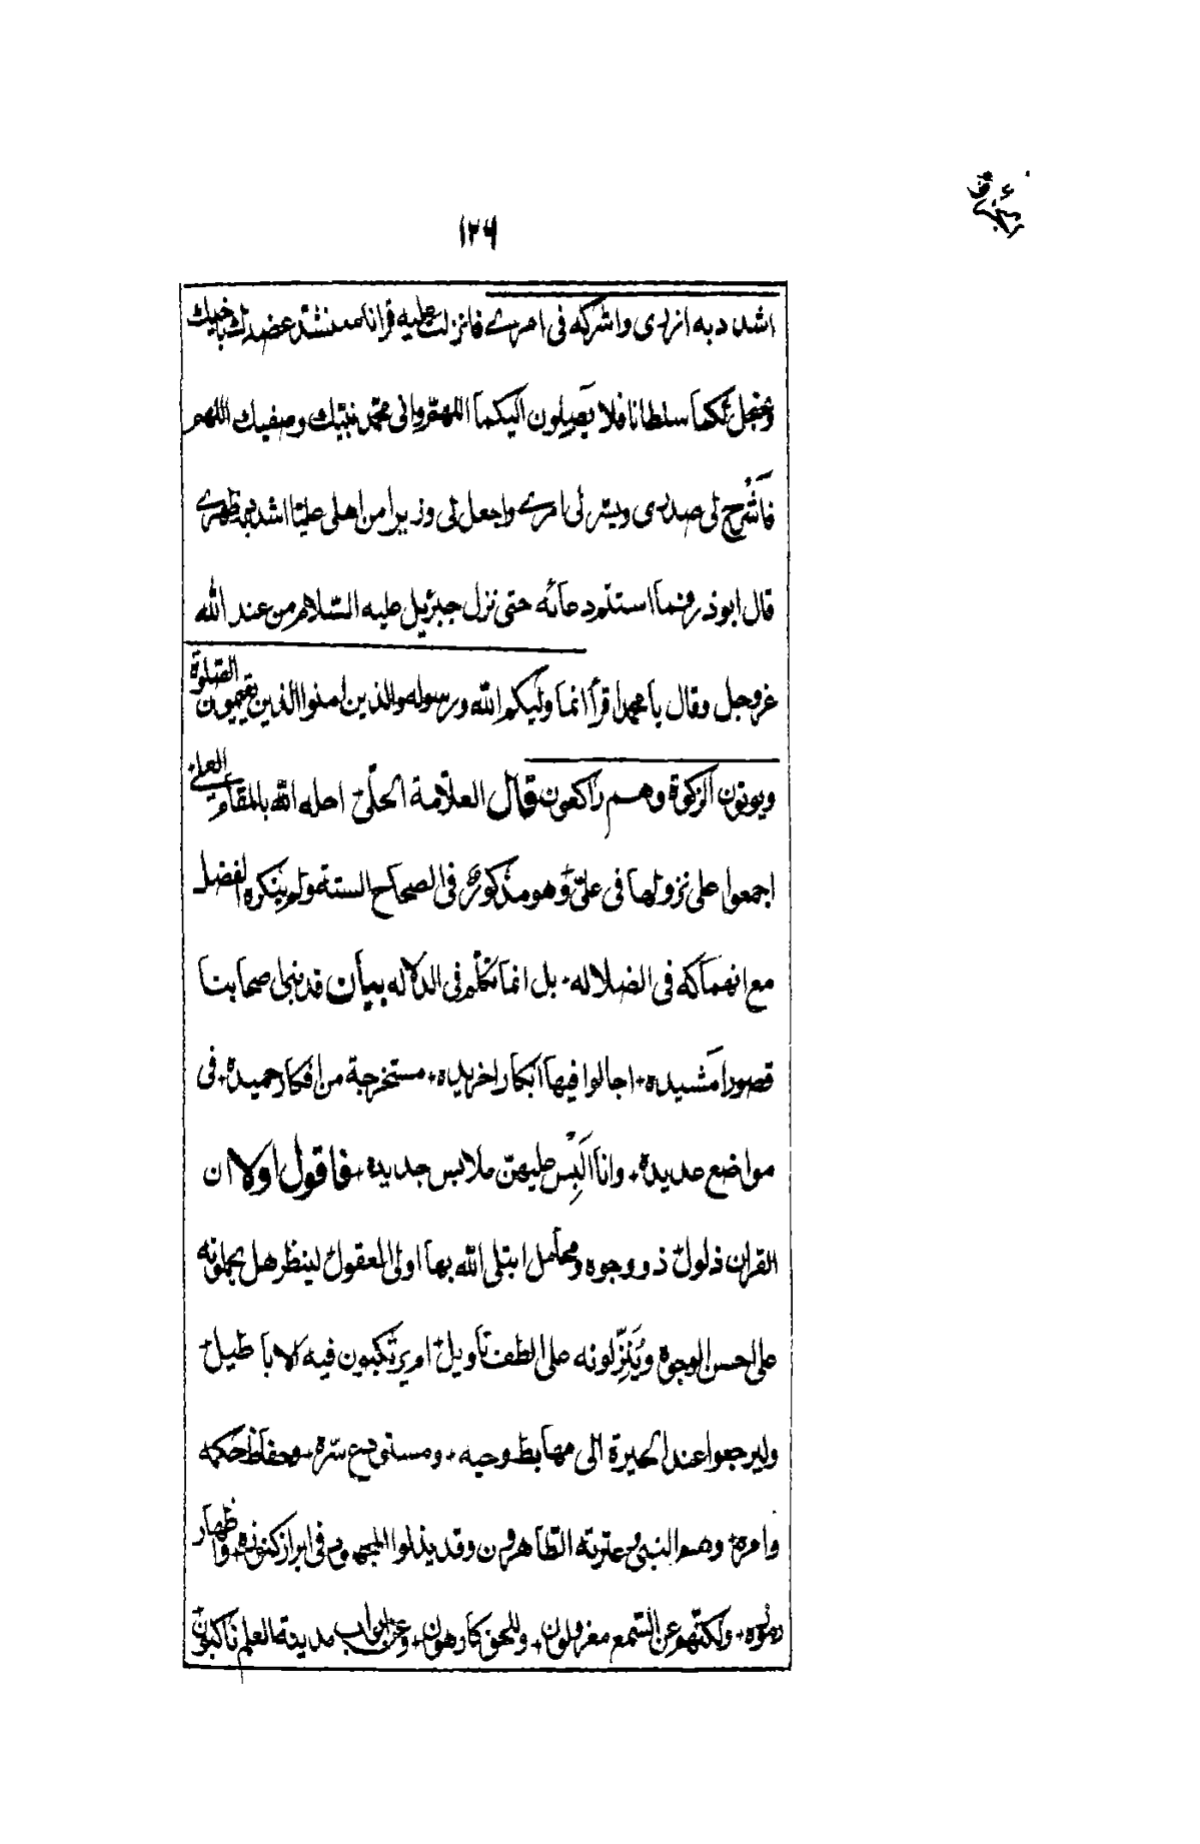 ١٢٦
اشدد به ازرى واشركه فى امرى فانزلت عليه قرانا سنشد عضدك باخيك
ونجعل لكما سلطانا فلا يصلون اليكما اللهم وانى محمد نبيك وصفيك اللهم
فاشرح لى صدرى ويسر لى امرى واجعل لى وزيرا من اهلى عليا اشدد به ظهرى
قال ابوذر فما استتم دعائه حتى نزل جبرئيل عليه السلام من عند الله
عز وجل وقال يا محمد اقرأ انما وليكم الله ورسوله والذين امنوا الذين يقيمون الصلوة
ويوتون الزكوة وهم راكعون قال العلامة الحلى احله الله بالمقام العلى
اجمعوا على نزولها فى على وهو مذكور فى الصحاح الستة ولم ينكره الفضل
مع انهماكه فى الضلاله بل انما تكلم فى الدلاله بيان قد بنى اصحابنا
قصورا مشيده اجالوا فيها ابكارا خريده مستخرجة من افكار حميدة فى
مواضع عديدة وانا البس عليهن ملابس جديده فاقول اولا ان
القران ذلول ذو وجوه ومحامل ابتلى الله بها اولى العقول لينظر هل يحملونه
على احسن الوجوه وينزلونه على الطف تاويل ام يرتكبون فيه الاباطيل
وليرجعوا عند الحيرة الى مهابط وحيه ومستودع سره وحفاظ حكمه
وامره وهم النبى وعترته الطاهرون وقد بذلوا المجهود فى ابراز كنوزه واظهار
رموزه ولكنهم عن السمع معزولون وللحق كارهون وعن ابواب مدينة العلم ناكبون